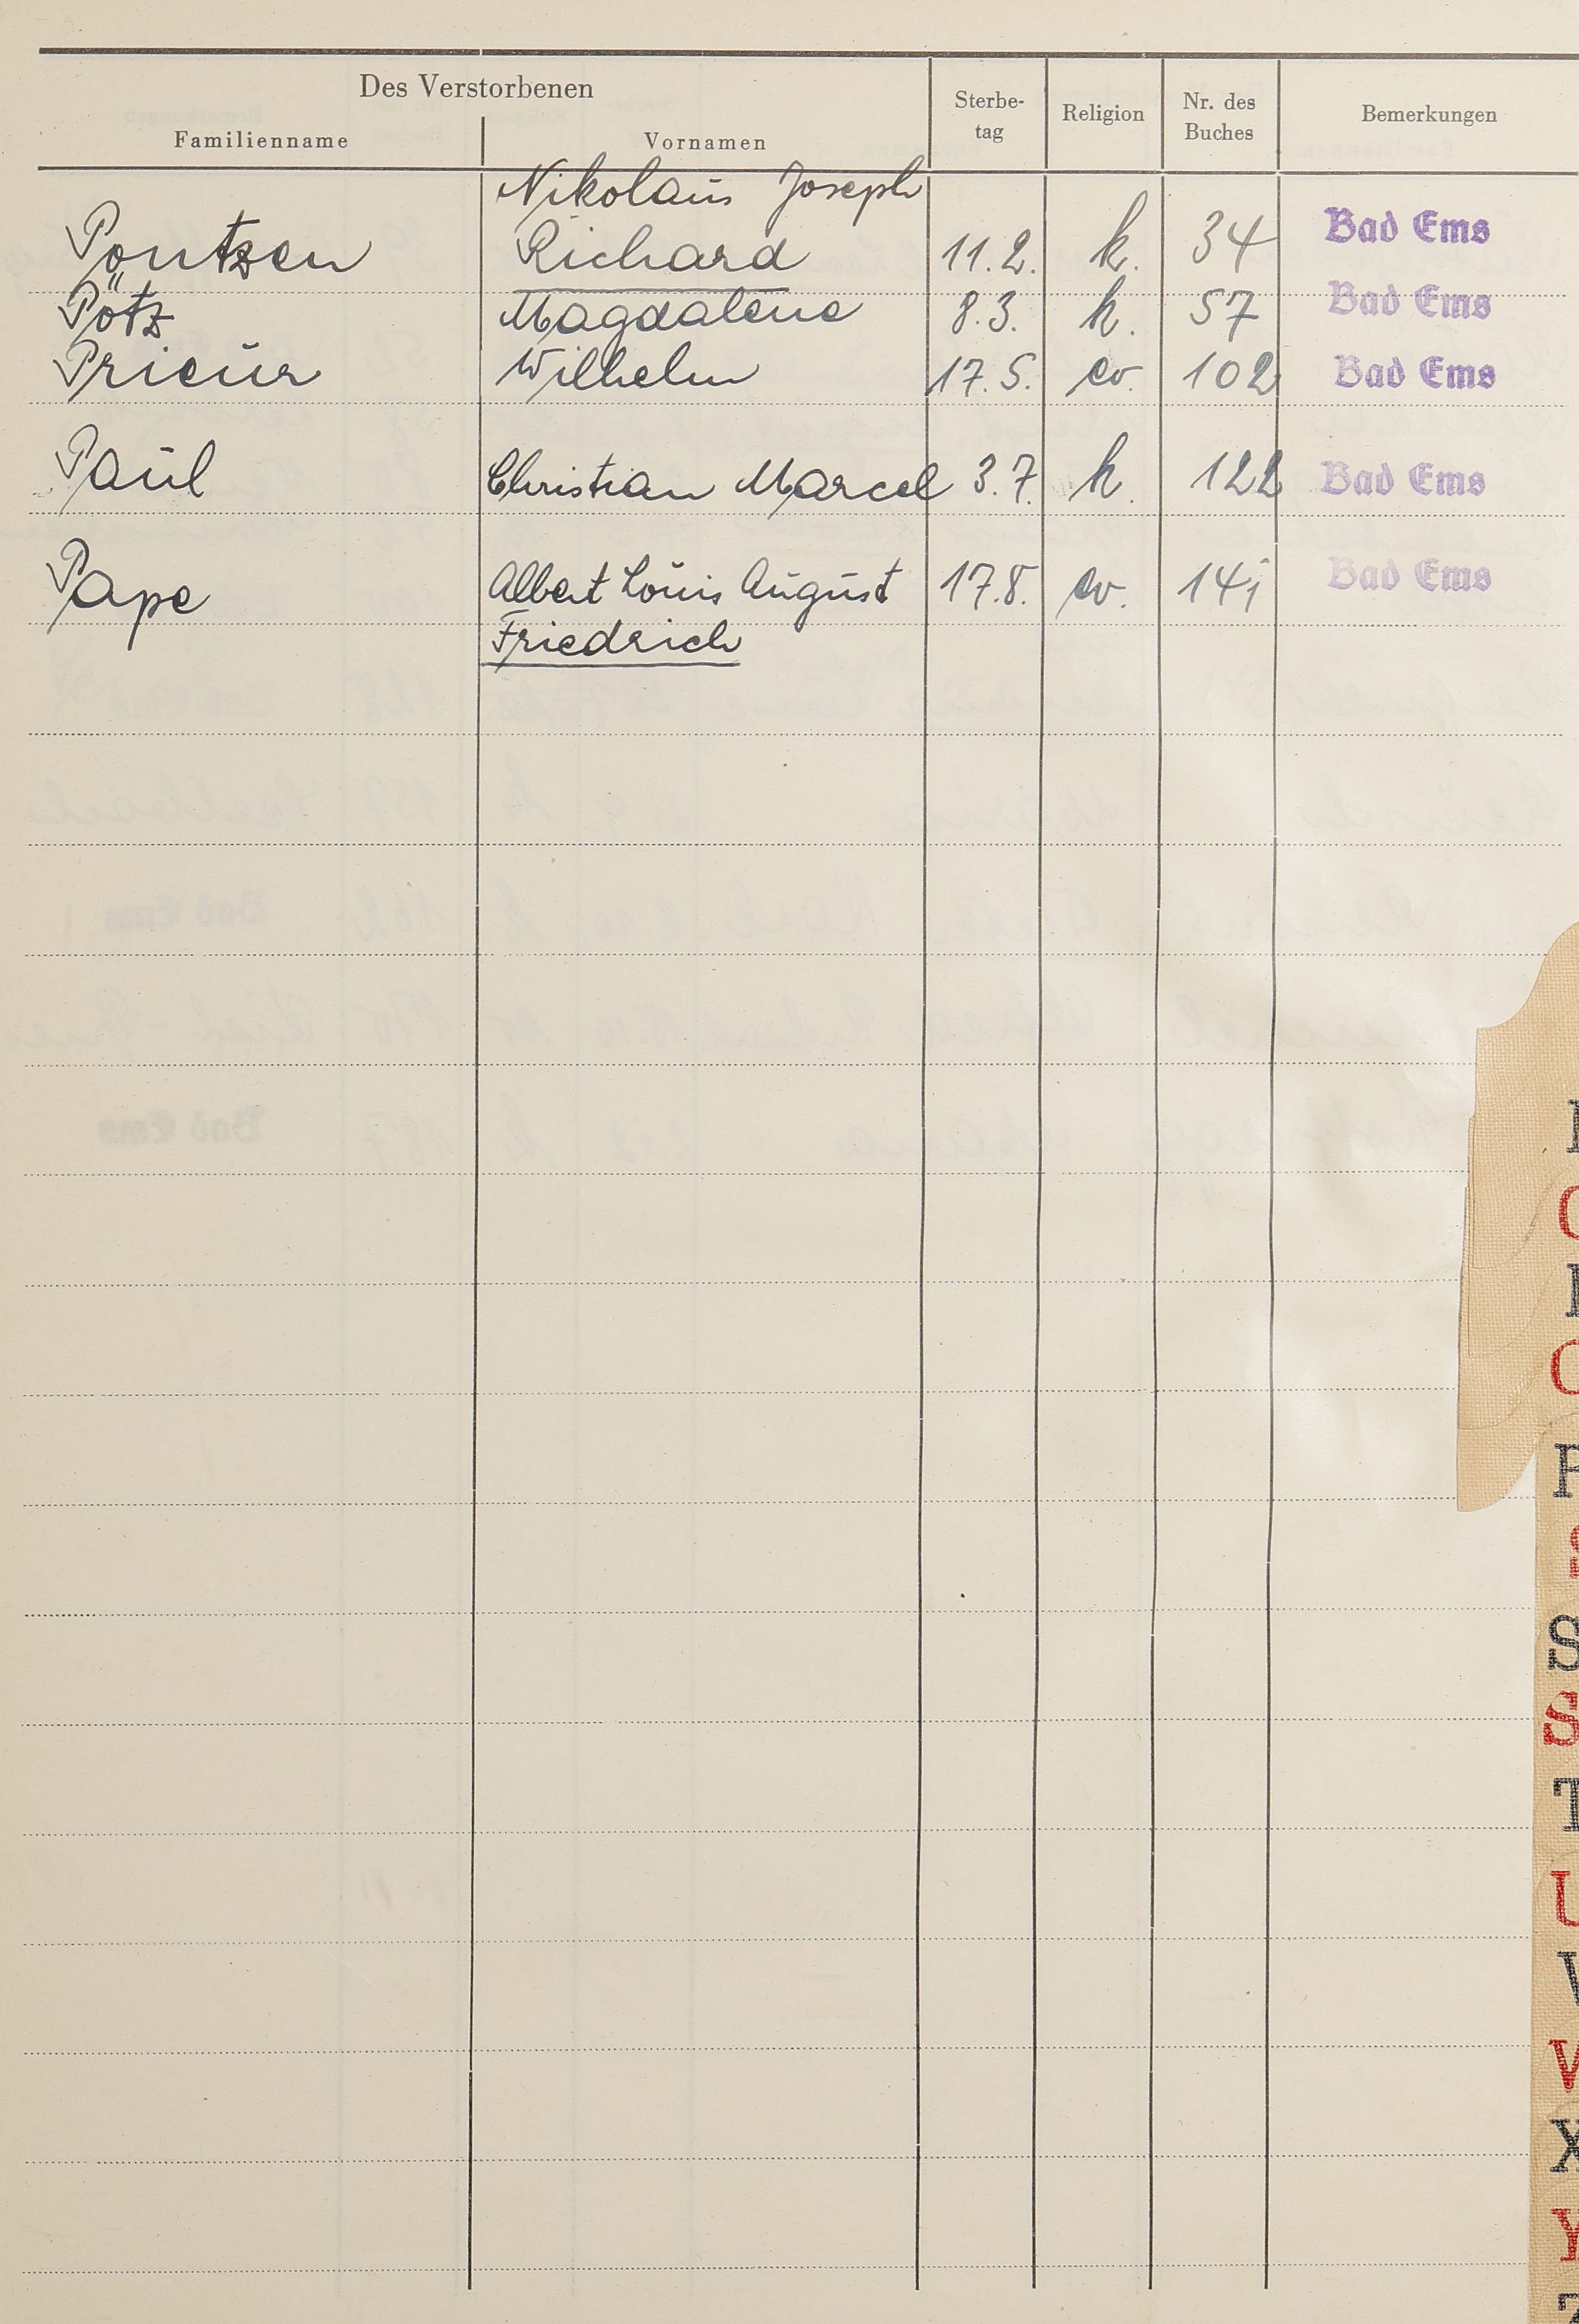 Des Verstorbenen
Familienname Vornamen Sterbe- tag Religion Nr. des Buches Bemerkungen
Nikolaus Joseph
Pontzen Richard 11.2. k. 34 Bad Ems
Pötz Magdalene 8.3. k. 57 Bad Ems
Prieur Wilhelm 17.5. ev. 102 Bad Ems
Paul Christian Marcel 3.7. k. 122 Bad Ems
Pape Albert Louis August 17.8. ev. 141 Bad Ems
Friedrich
S
S
T
U
V
W
X
Y